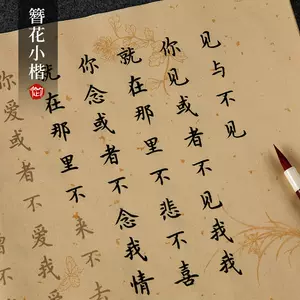 簪花小楷
见与不见
你见或者不见我
就在那里不悲不喜
你念或者不念我情
就在那里不来不
你爱或者不爱我